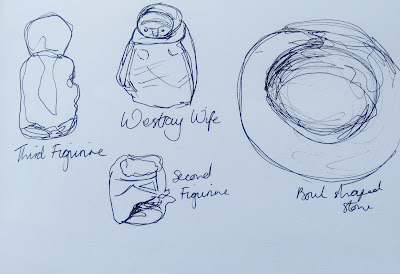 Westray Wife
Third Figurine
Second
Figurine
Bowl shaped
Stone